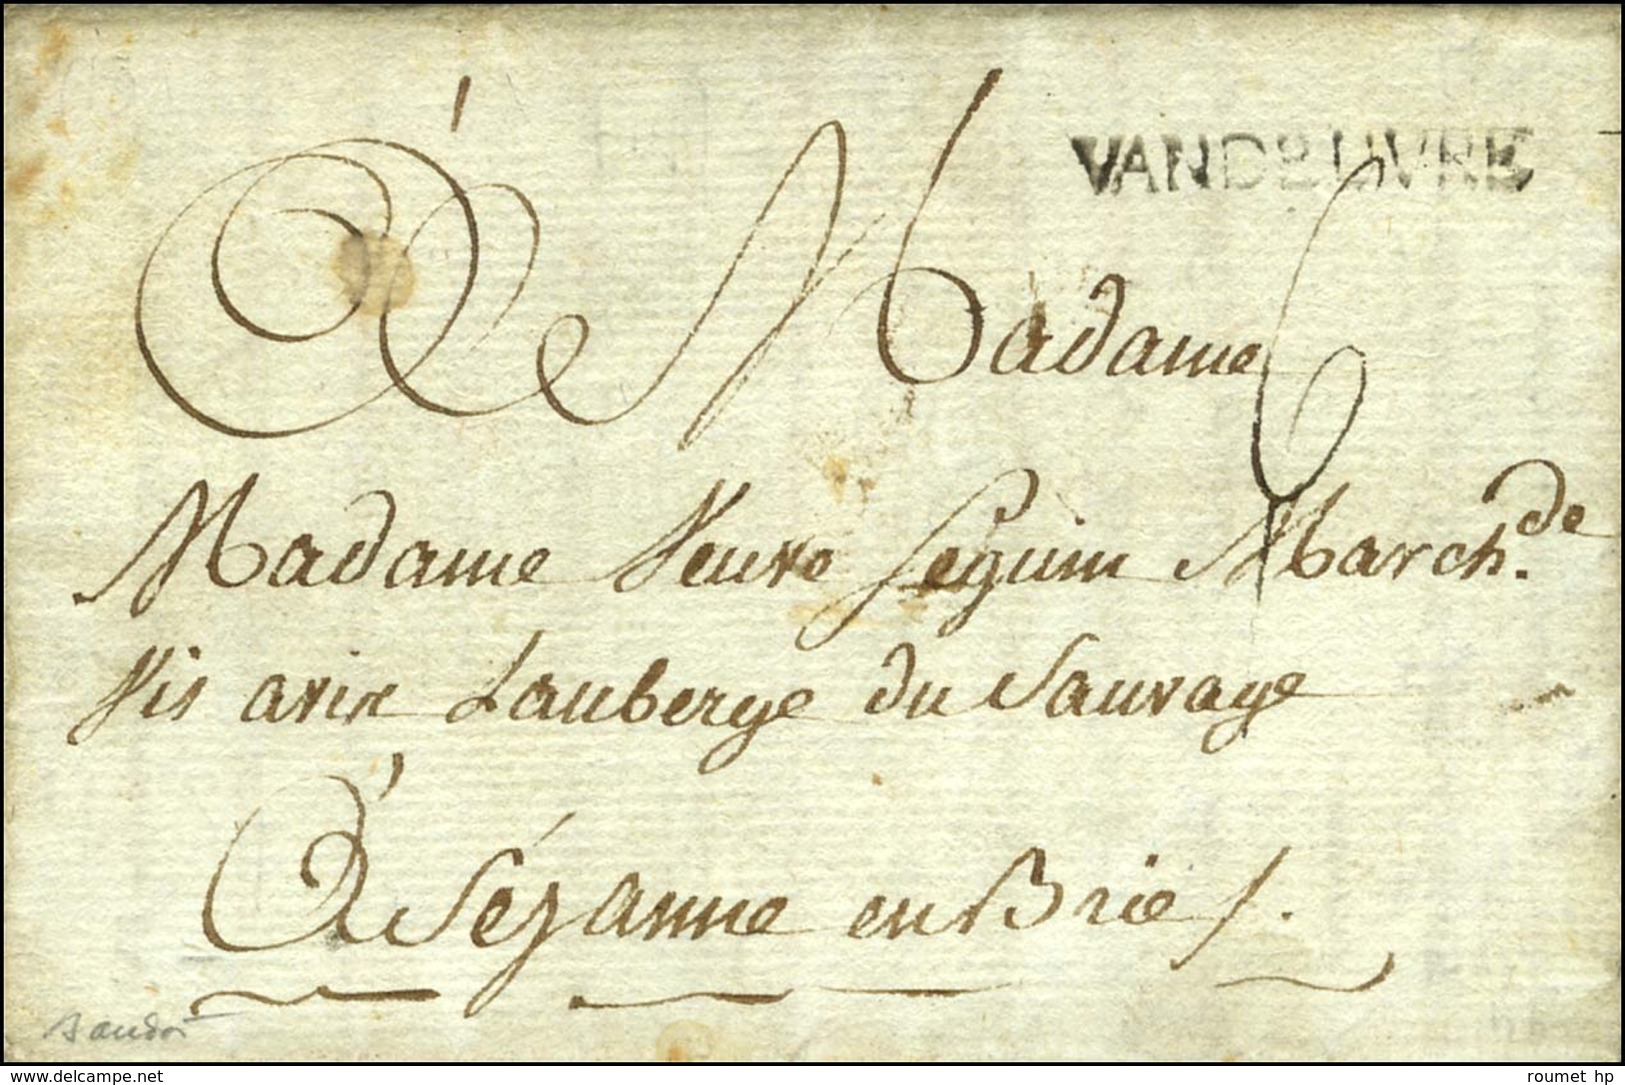 VANDEUVRE
A Madame
6
Madame Veuve Seguin March.de
Vis avix Lauberge du Sauvage
A Sézanne en Brie /.
Baudot
www.delcampe.net
roumet hp